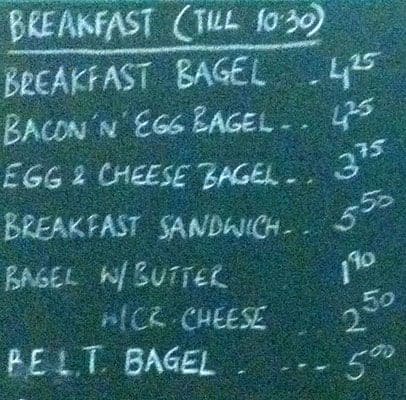 BREAKFAST (TILL 10:30)
BREAKFAST BAGEL .. 4.25
BACON 'N' EGG BAGEL.. 4.25
EGG & CHEESE BAGEL.. 3.75
BREAKFAST SANDWICH.. 5.50
BAGEL W/BUTTER 1.90
W/CR. CHEESE .. 2.50
B.E.L.T. BAGEL . --- 5.00